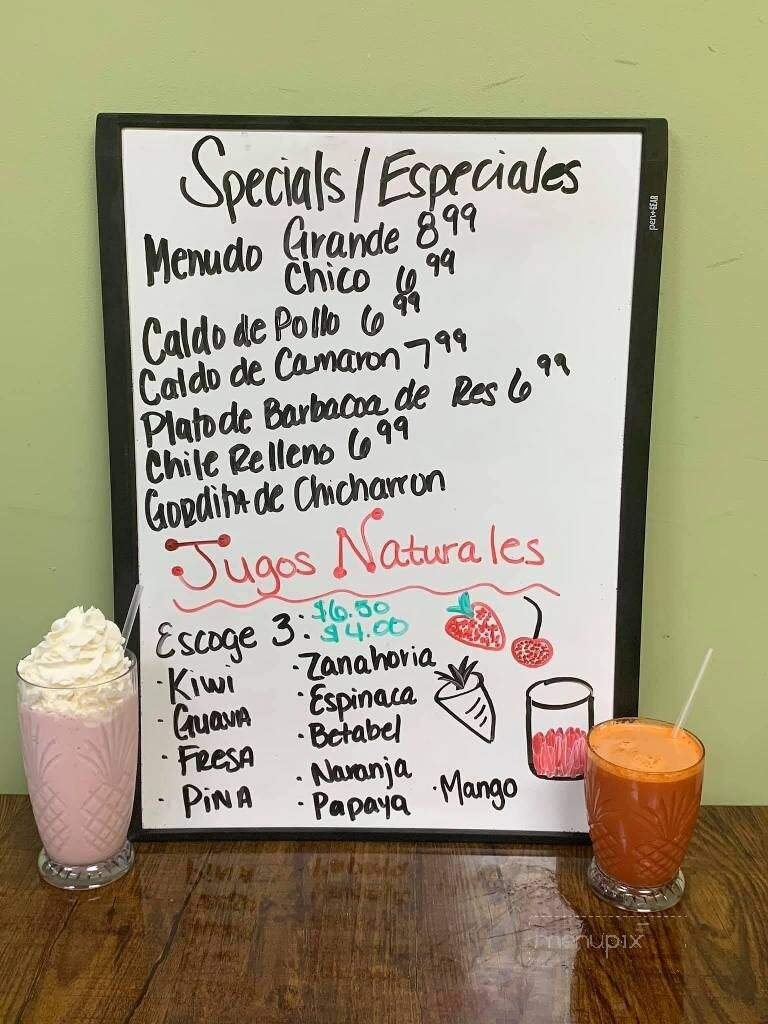 Specials/Especiales
Menudo Grande 8 99
Chico 6 99
Caldo de Pollo 6 99
Caldo de Camaron 7 99
Plato de Barbacoa de Res 6 99
Chile Relleno 6 99
Gordita de Chicharron
Jugos Naturales
Escoge 3: $6.50
$4.00
· Kiwi
· Guava
· Fresa
· Pina
· Zanahoria
· Espinaca
· Betabel
· Naranja
· Papaya
· Mango
pen+GEAR
menupix